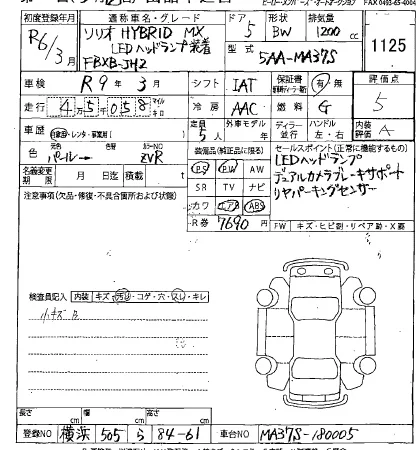 FAX 0493-65-4004
初度登録年月
通称車名・グレード
ドア
形状
排気量
R6/3月
ソリオ HYBRID MX
LEDヘッドランプ装着
FBXB-JH2
5
BW
1200 cc
型式
5AA-MA37S
1125
車検
R9年 3月
シフト
IAT
保証書
有・無
評価点
5
走行
4万5058
マイル
キロ
冷房
AAC
燃料
G
車歴
自家用・レンタ・事業用
定員
5人
外車モデル
年
ディーラー
並行
ハンドル
左・右
内装
評価
A
色
元色
パール→
色替
カラーNO
ZVR
装備品(純正品に限る)
セールスポイント(正常に機能するもの)
名義変更
期限
月
日迄
積載
t
PS
PW
AW
LEDヘッドランプ
注意事項(欠品・修復・不具合箇所および状態)
SR
TV
ナビ
デュアルカメラブレーキサポート
カワ
エアB
ABS
リヤパーキングセンサー
R券
7690
円
FW
キズ・ヒビ割・リペア跡・X要
検査員記入
内装
キズ・汚れ・コゲ・穴・スレ・キレ
小キズ B
長さ
cm
幅
cm
高さ
cm
登録NO
横浜 505 ら 84-61
車台NO
MA37S-180005